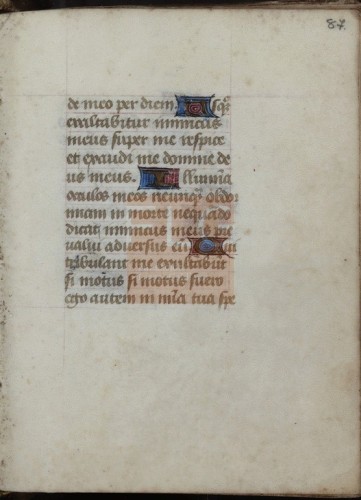 87.
de meo per diem. Usq̄
exaltabitur inimicus
meus super me respice
et exaudi me domine de
us meus. Illumīa
oculos meos neunq̄ obdor
miam in morte nequādo
dicat inimicus meus pre
valui adversus eū Qui
tribulant me exultabūt
si motus si motus fuero
ego autem in mīa tua spe